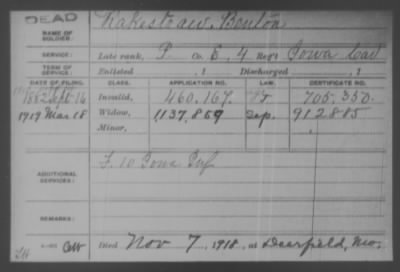 DEAD
Rakestraw, Benton
NAME OF SOLDIER:
SERVICE: Late rank, P Co. E, 4 Reg't Iowa Cav
TERM OF SERVICE: Enlisted , 1 Discharged , 1
DATE OF FILING. CLASS. APPLICATION NO. LAW. CERTIFICATE NO.
1882 Sept 16 Invalid, 460.167. 705.350.
1919 Mar 18 Widow, 1,137,859 Sep. 912885
Minor,
ADDITIONAL SERVICES: F. 10 Iowa Inf
REMARKS:
Died Nov 7, 1918, at Deerfield, Mo.